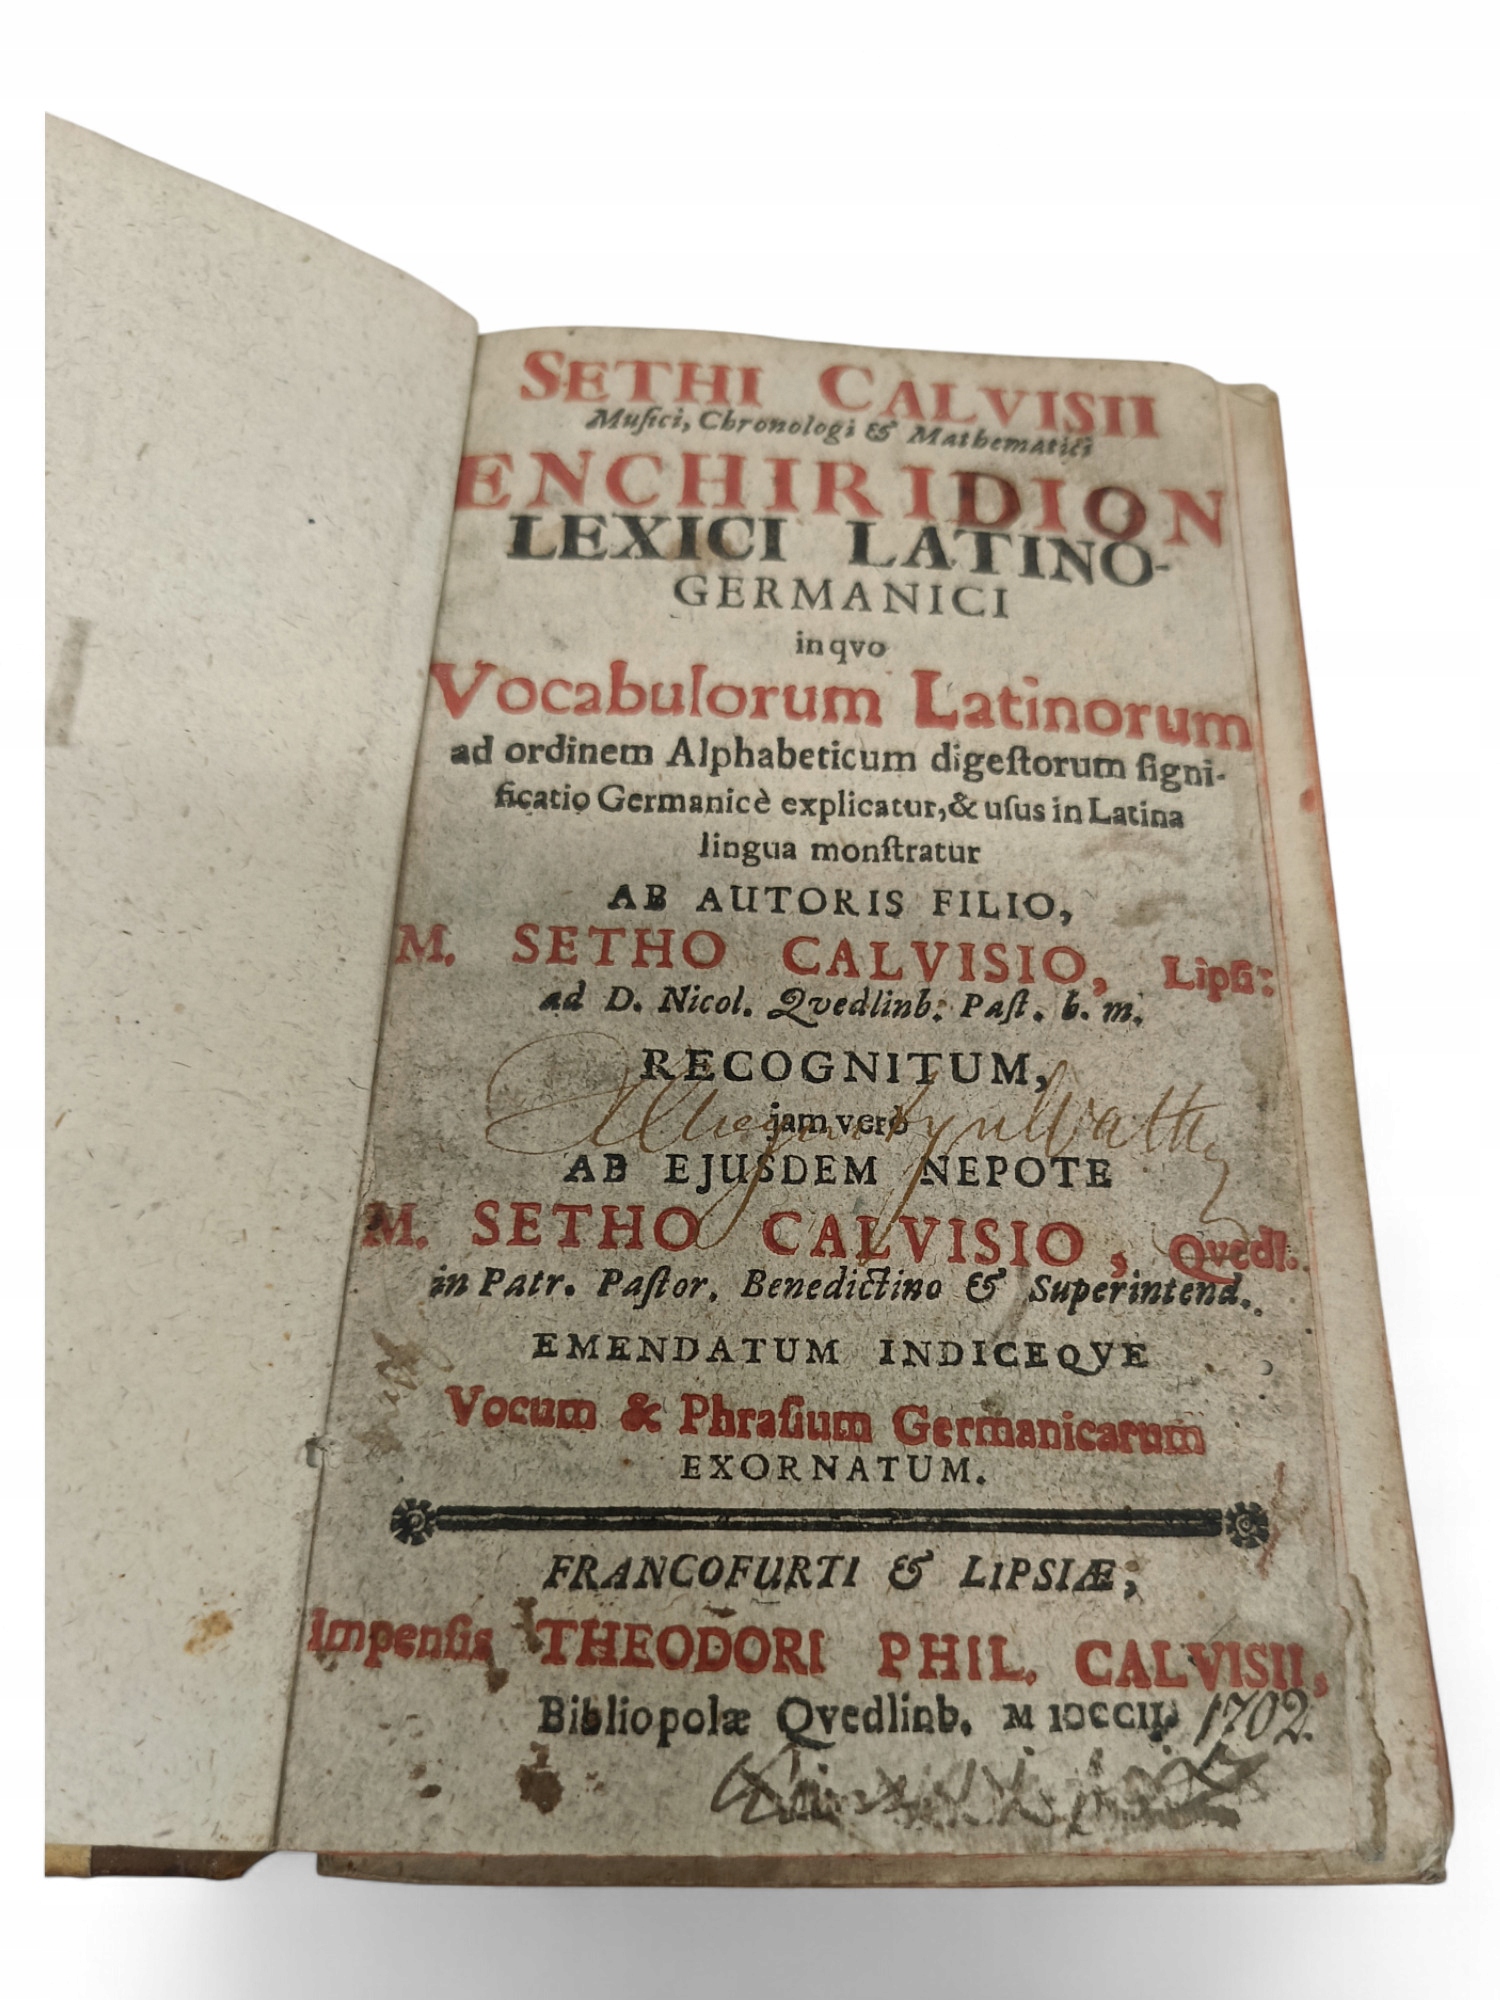 SETHI CALVISII
Muſici, Chronologi & Mathematici
ENCHIRIDION
LEXICI LATINO-
GERMANICI
in qvo
Vocabulorum Latinorum
ad ordinem Alphabeticum digeſtorum ſigni-
ficatio Germanicè explicatur, & uſus in Latina
lingua monſtratur
AB AUTORIS FILIO,
M. SETHO CALVISIO, Lipſi:
ad D. Nicol. Qvedlinb: Paſt. b. m.
RECOGNITUM,
jam verò
AB EJUSDEM NEPOTE
M. SETHO CALVISIO, Qvedl.
in Patr. Paſtor. Benedictino & Superintend.
EMENDATUM INDICEQVE
Vocum & Phraſium Germanicarum
EXORNATUM.
FRANCOFURTI & LIPSIÆ;
Impenſis THEODORI PHIL. CALVISII,
Bibliopolæ Qvedlinb. M IↃCCII. 1702.